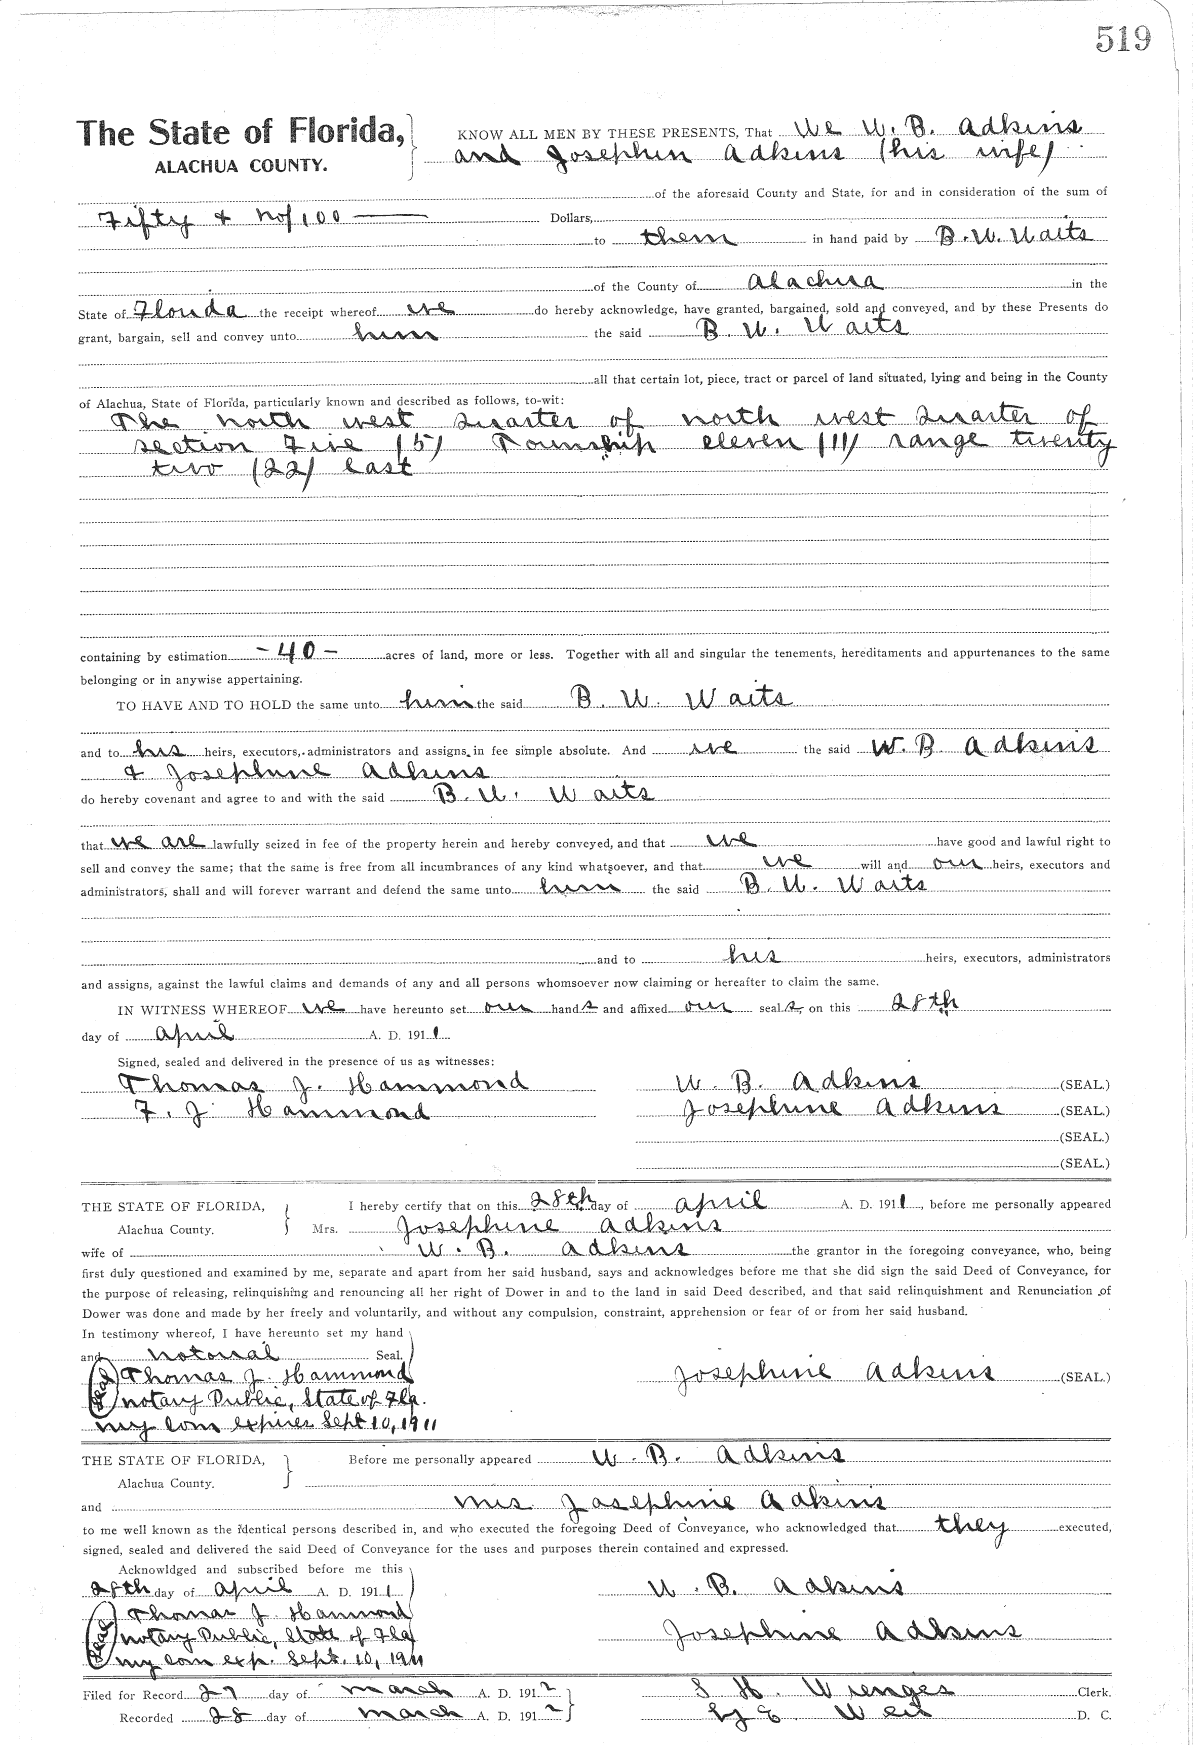 519
The State of Florida, KNOW ALL MEN BY THESE PRESENTS, That We W. B. Adkins
ALACHUA COUNTY. and Josephin Adkins (his wife)
of the aforesaid County and State, for and in consideration of the sum of
Fifty & no/100 Dollars,
to them in hand paid by B. W. Waits
of the County of Alachua in the
State of Florida the receipt whereof we do hereby acknowledge, have granted, bargained, sold and conveyed, and by these Presents do
grant, bargain, sell and convey unto him the said B. W. Waits
all that certain lot, piece, tract or parcel of land situated, lying and being in the County
of Alachua, State of Florida, particularly known and described as follows, to-wit:
The north west quarter of north west quarter of
section Five (5) Township eleven (11) range twenty
two (22) East
containing by estimation -40- acres of land, more or less. Together with all and singular the tenements, hereditaments and appurtenances to the same
belonging or in anywise appertaining.
TO HAVE AND TO HOLD the same unto him the said B. W. Waits
and to his heirs, executors, administrators and assigns in fee simple absolute. And we the said W. B. Adkins
& Josephine Adkins
do hereby covenant and agree to and with the said B. W. Waits
that we are lawfully seized in fee of the property herein and hereby conveyed, and that we have good and lawful right to
sell and convey the same; that the same is free from all incumbrances of any kind whatsoever, and that we will and our heirs, executors and
administrators, shall and will forever warrant and defend the same unto him the said B. W. Waits
and to his heirs, executors, administrators
and assigns, against the lawful claims and demands of any and all persons whomsoever now claiming or hereafter to claim the same.
IN WITNESS WHEREOF we have hereunto set our hands and affixed our seals on this 28th
day of April A. D. 1911.
Signed, sealed and delivered in the presence of us as witnesses:
Thomas J. Hammond W. B. Adkins (SEAL.)
F. J. Hammond Josephine Adkins (SEAL.)
(SEAL.)
(SEAL.)
THE STATE OF FLORIDA, I hereby certify that on this 28th day of April A. D. 1911, before me personally appeared
Alachua County. Mrs. Josephine Adkins
wife of W. B. Adkins the grantor in the foregoing conveyance, who, being
first duly questioned and examined by me, separate and apart from her said husband, says and acknowledges before me that she did sign the said Deed of Conveyance, for
the purpose of releasing, relinquishing and renouncing all her right of Dower in and to the land in said Deed described, and that said relinquishment and Renunciation of
Dower was done and made by her freely and voluntarily, and without any compulsion, constraint, apprehension or fear of or from her said husband.
In testimony whereof, I have hereunto set my hand
and notorial Seal.
Seal Thomas J. Hammond Josephine Adkins (SEAL.)
notary Public, State of Fla.
my Com expires Sept 10, 1911
THE STATE OF FLORIDA, Before me personally appeared W. B. Adkins
Alachua County.
and Mrs. Josephine Adkins
to me well known as the identical persons described in, and who executed the foregoing Deed of Conveyance, who acknowledged that they executed,
signed, sealed and delivered the said Deed of Conveyance for the uses and purposes therein contained and expressed.
Acknowldged and subscribed before me this
28th day of April A. D. 1911 W. B. Adkins
Seal Thomas J. Hammond
notary Public, State of Fla Josephine Adkins
my com exp. Sept. 10, 1911
Filed for Record 27 day of March A. D. 1912 S H. Wienges Clerk.
Recorded 28 day of March A. D. 1912 by E D. C.